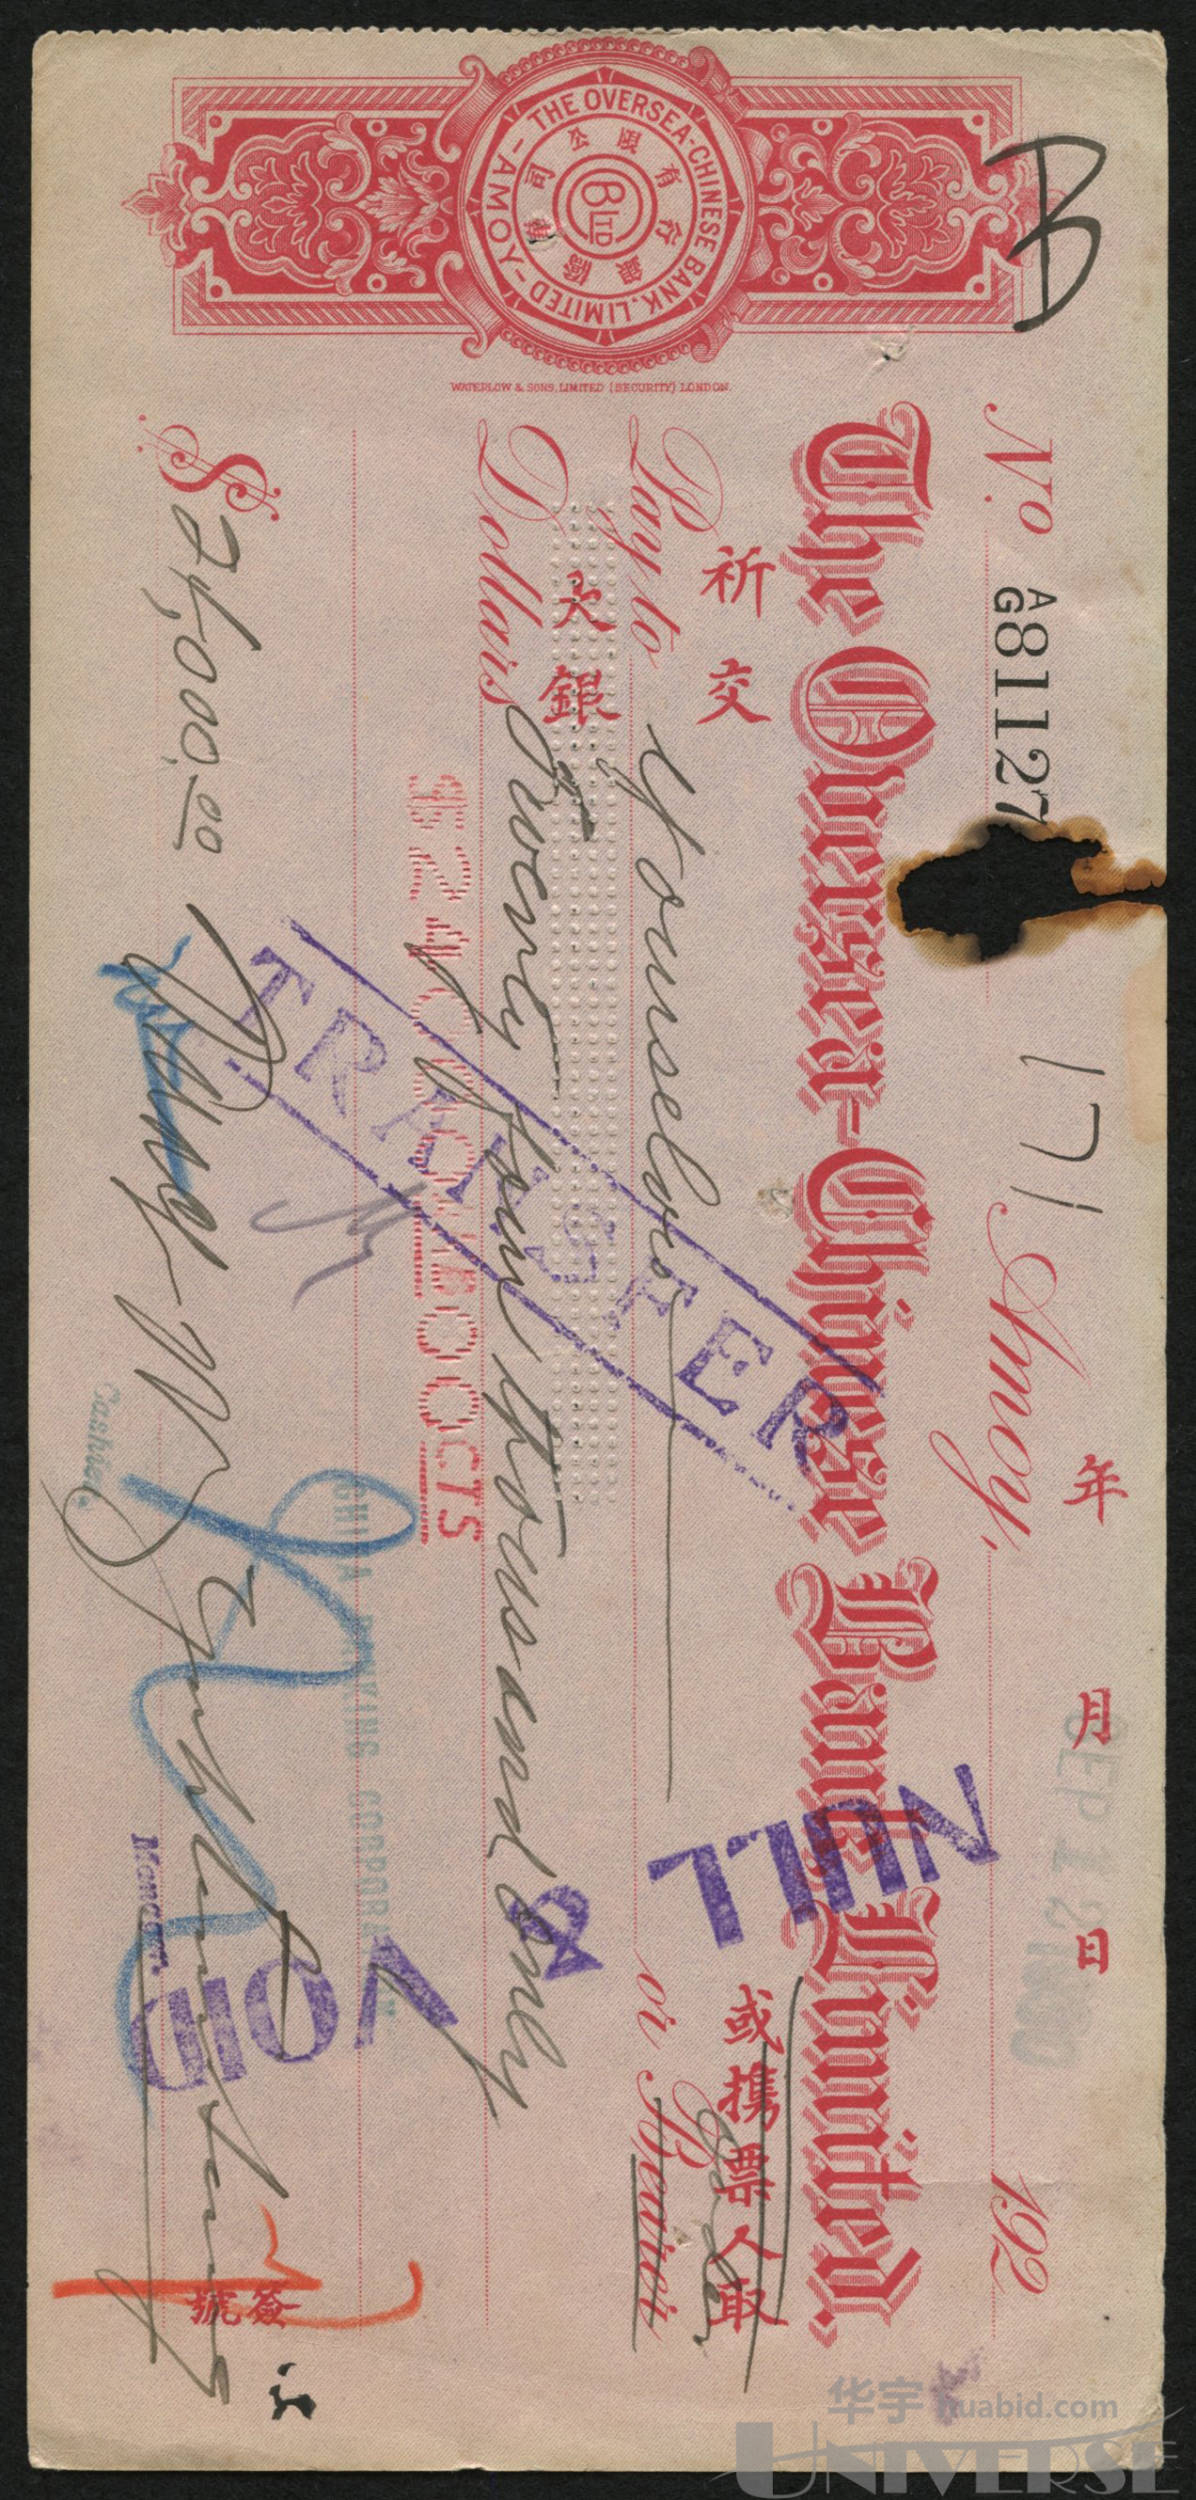 THE OVERSEA-CHINESE BANK, LIMITED
- AMOY -
銀行有限公司
B LTD
WATERLOW & SONS, LIMITED (SECURITY) LONDON.
B
No A/G 81127
171
Amoy, 192
年 月 日
SEP 12
The Oversea-Chinese Bank Limited.
祈交
Pay to Yourselves
或攜票人取
or Bearer
Order
大銀
Dollars Twenty four thousand only
$24000 00CTS
$24,000.00
TRANSFER
NULL & VOID
CHINA BANKING CORPORATION
Cashier.
Manager.
簽號
华宇 huabid.com
UNIVERSE